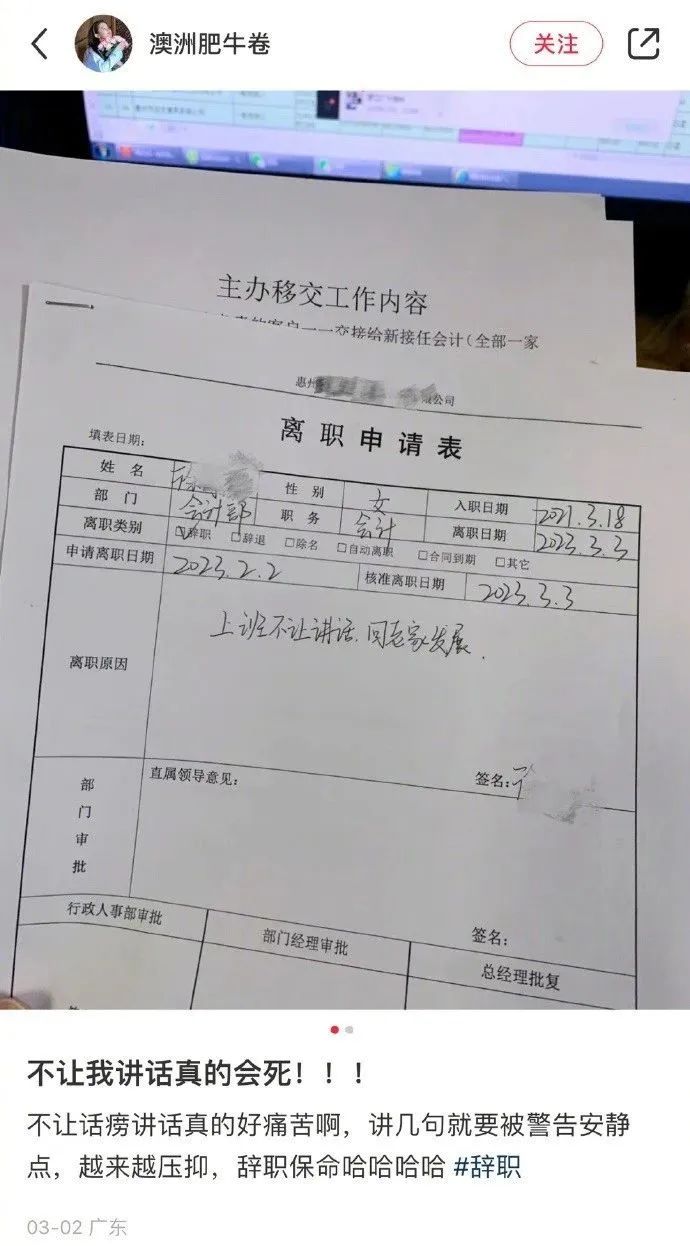 澳洲肥牛卷
关注
主办移交工作内容
一一交接给新接任会计（全部一家
惠州
限公司
离职申请表
填表日期：
姓 名
性 别 女 入职日期 2021.3.18
部 门 会计部 职 务 会计 离职日期 2023.3.3
离职类别 ☑辞职 □辞退 □除名 □自动离职 □合同到期 □其它
申请离职日期 2023.2.2 核准离职日期 2023.3.3
离职原因 上班不让讲话.回老家发展.
签名：
部门审批 直属领导意见：
签名：
行政人事部审批 部门经理审批 总经理批复
不让我讲话真的会死！！！
不让话痨讲话真的好痛苦啊，讲几句就要被警告安静
点，越来越压抑，辞职保命哈哈哈哈 #辞职
03-02 广东